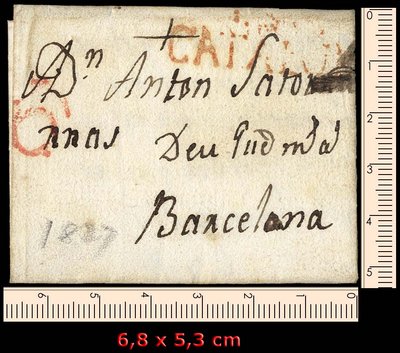 CATALU
Dn Anton Saton
nnas Deu Gude md a
Barcelona
1827
0
1
2
3
4
5
6 5 4 3 2 1 0
6,8 x 5,3 cm